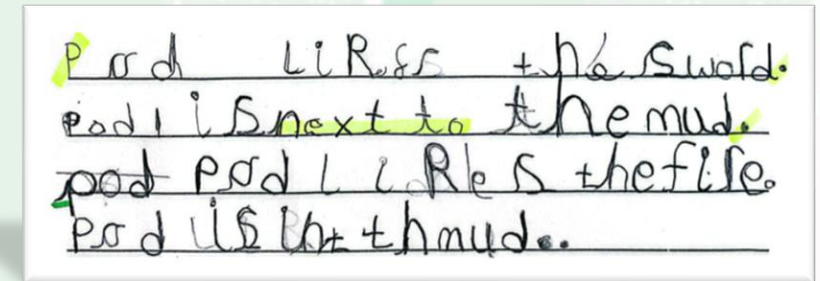 Pod LiRes the Sword.
Pod is next to the mud.
pod Pod LiRes the fire.
Pod is the thmud..